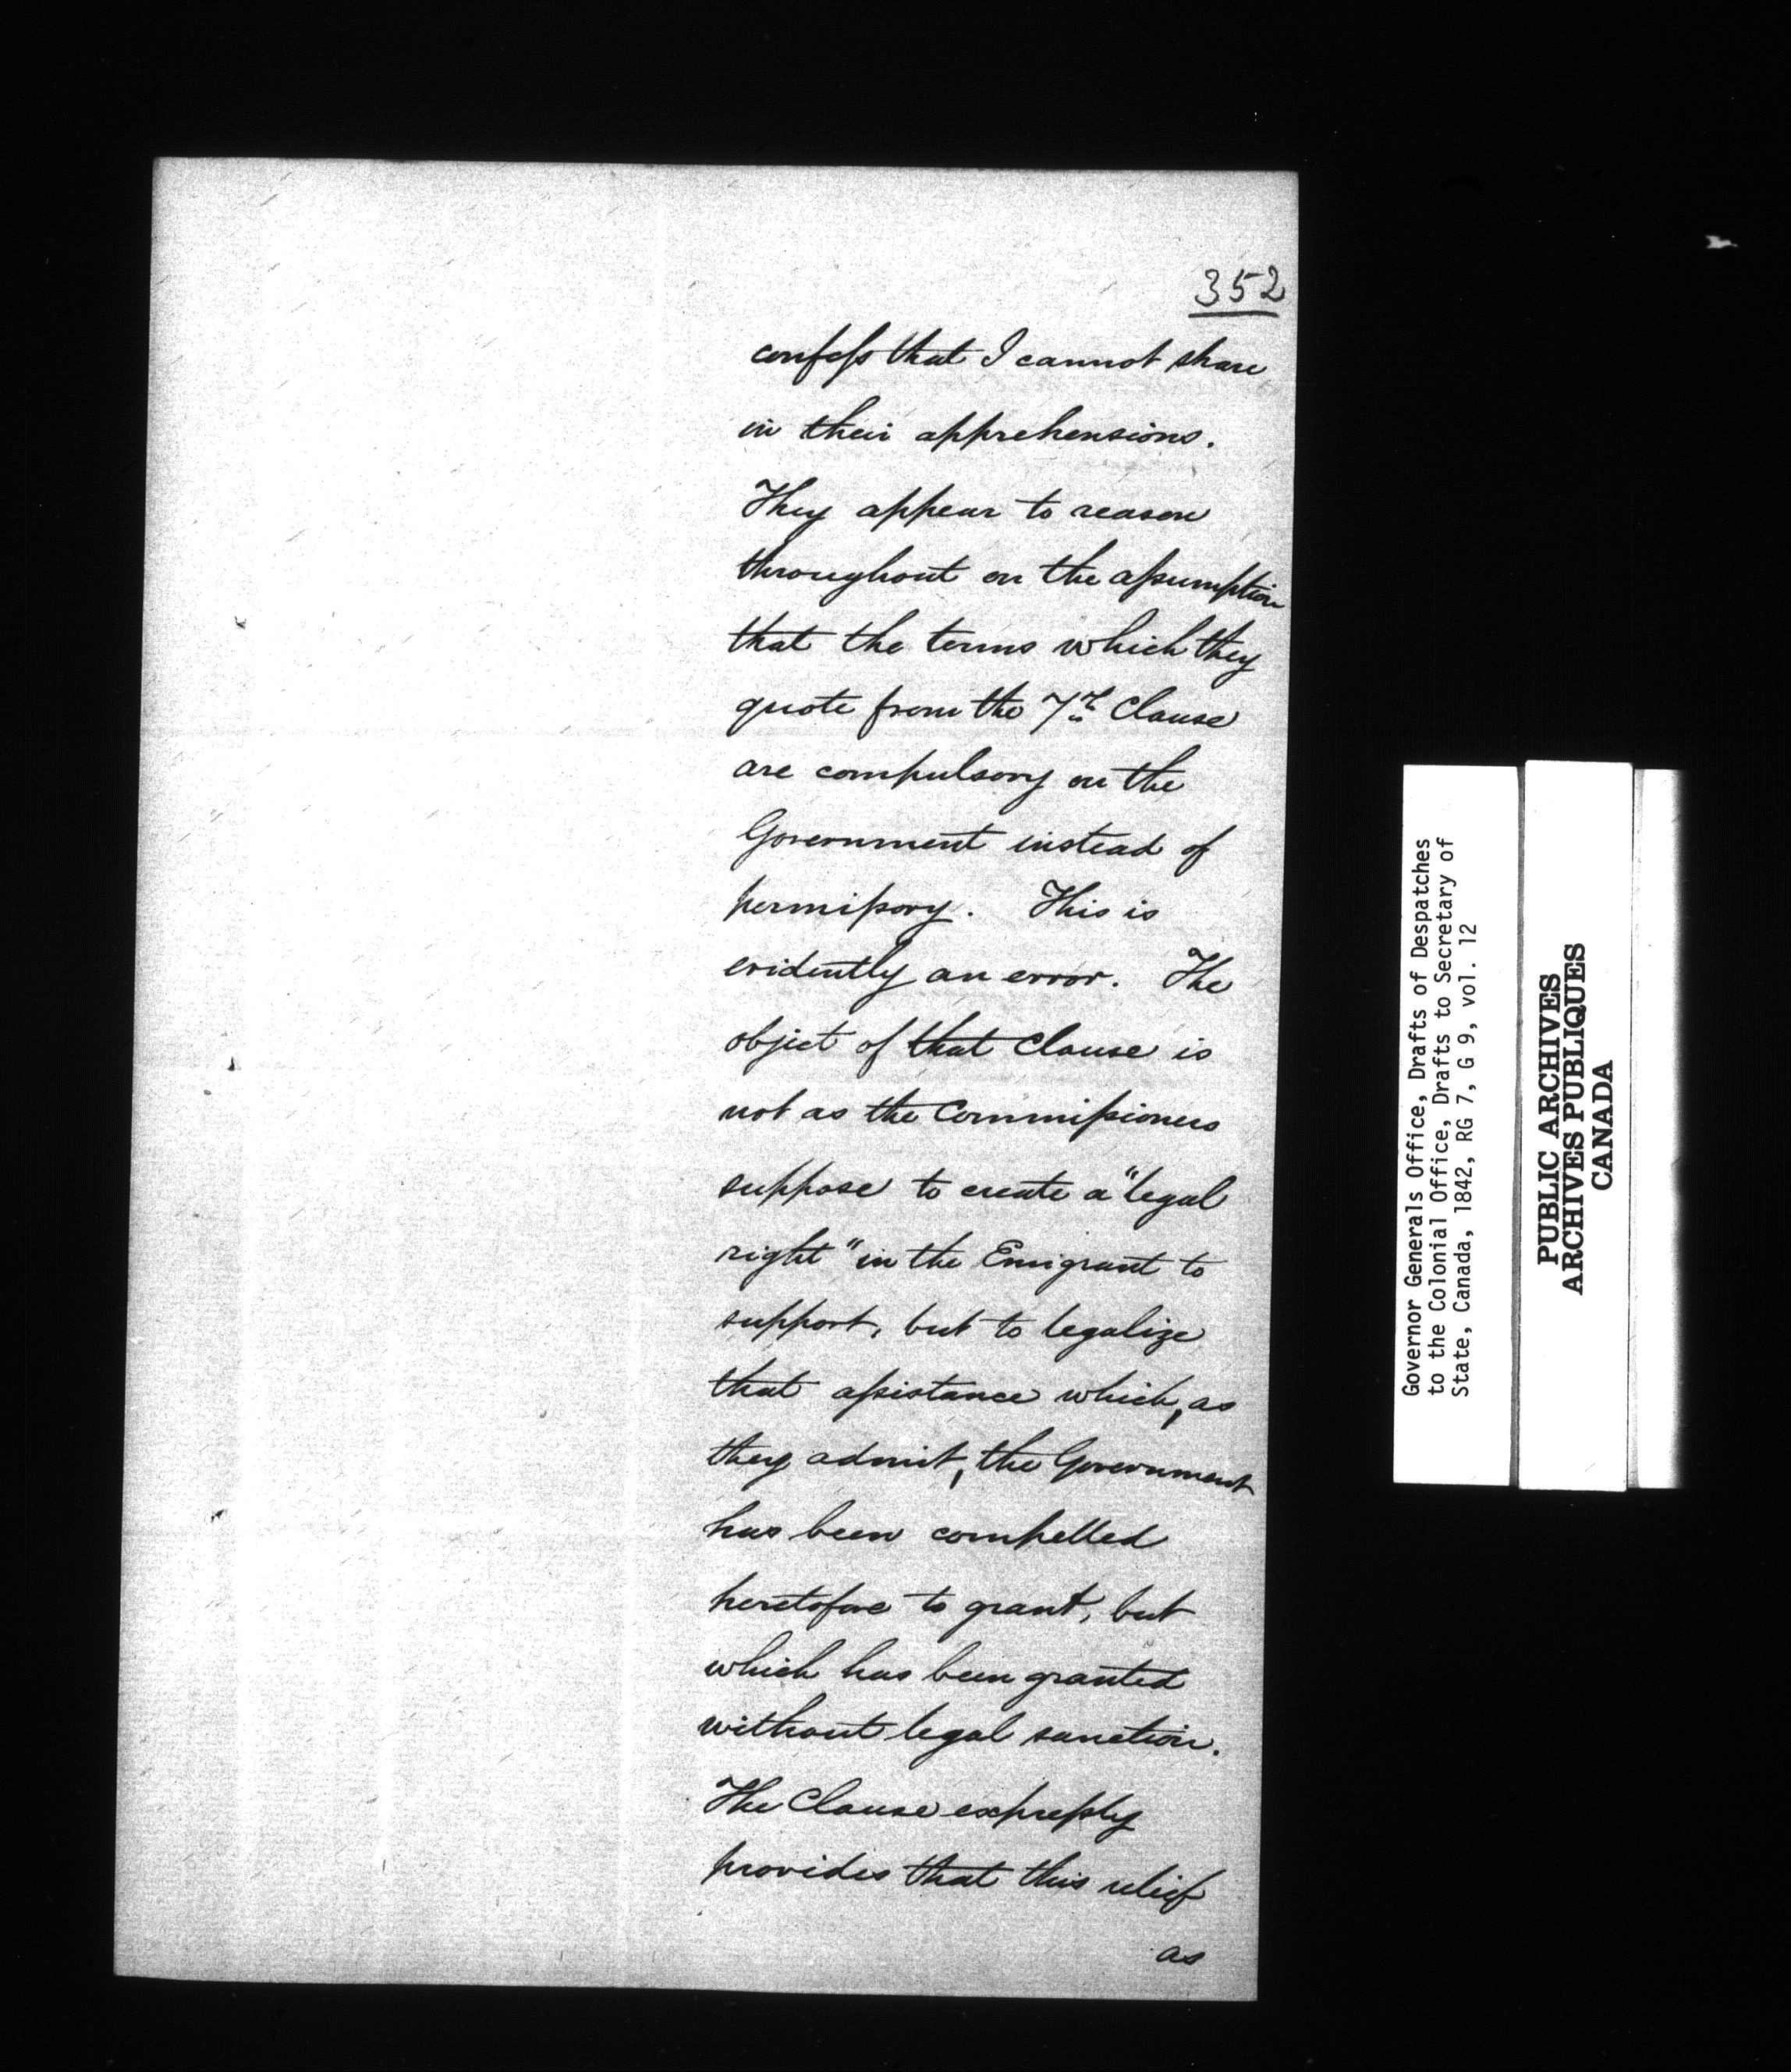 352
confess that I cannot share
in their apprehensions.
They appear to reason
throughout on the assumption
that the terms which they
quote from the 7th Clause
are compulsory on the
Government instead of
permissory. This is
evidently an error. The
object of that Clause is
not as the Commissioners
suppose to create a "legal
right" in the Emigrant to
support, but to legalize
that assistance which, as
they admit, the Government
has been compelled
heretofore to grant, but
which has been granted
without legal sanction.
The Clause expressly
provides that this relief
as
Governor Generals Office, Drafts of Despatches
to the Colonial Office, Drafts to Secretary of
State, Canada, 1842, RG 7, G 9, vol. 12
PUBLIC ARCHIVES
ARCHIVES PUBLIQUES
CANADA